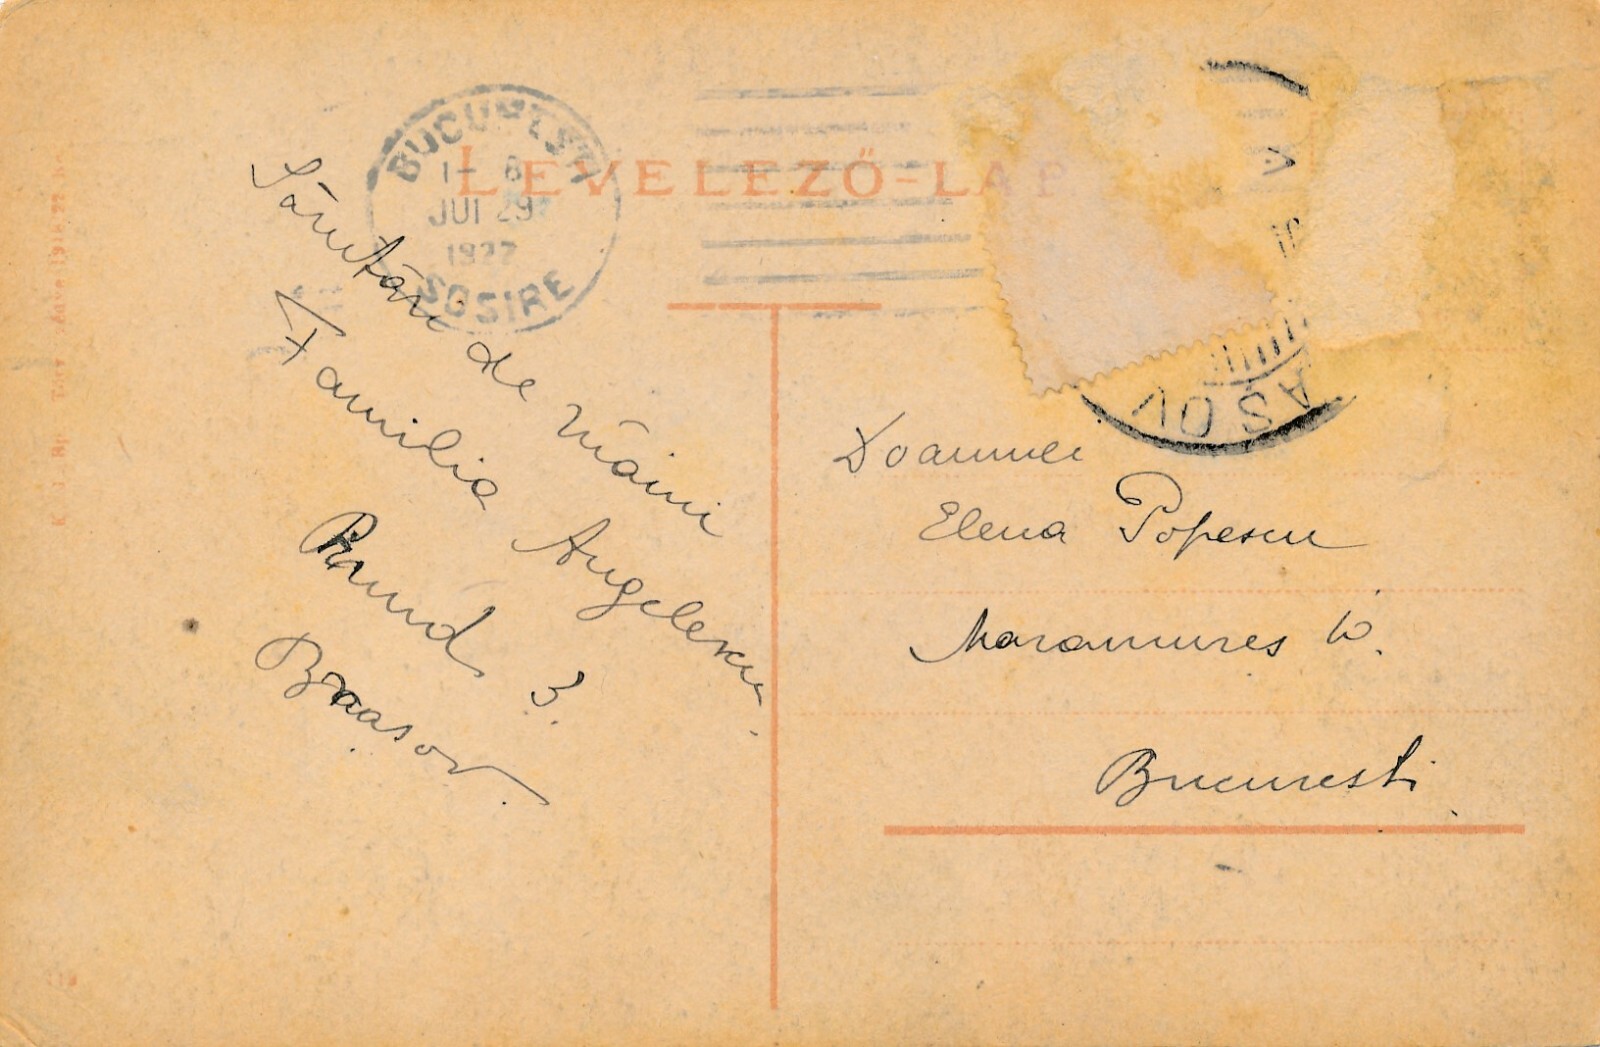 LEVELEZŐ=LAP
BUCUREȘTI
1- 8
JUI 29
1927
SOSIRE
ASOV
Sărutări de mâini
Familia Angelescu.
3.
Brasov.
Doamnei
Elena Popescu
Maramures 10.
Bucuresti